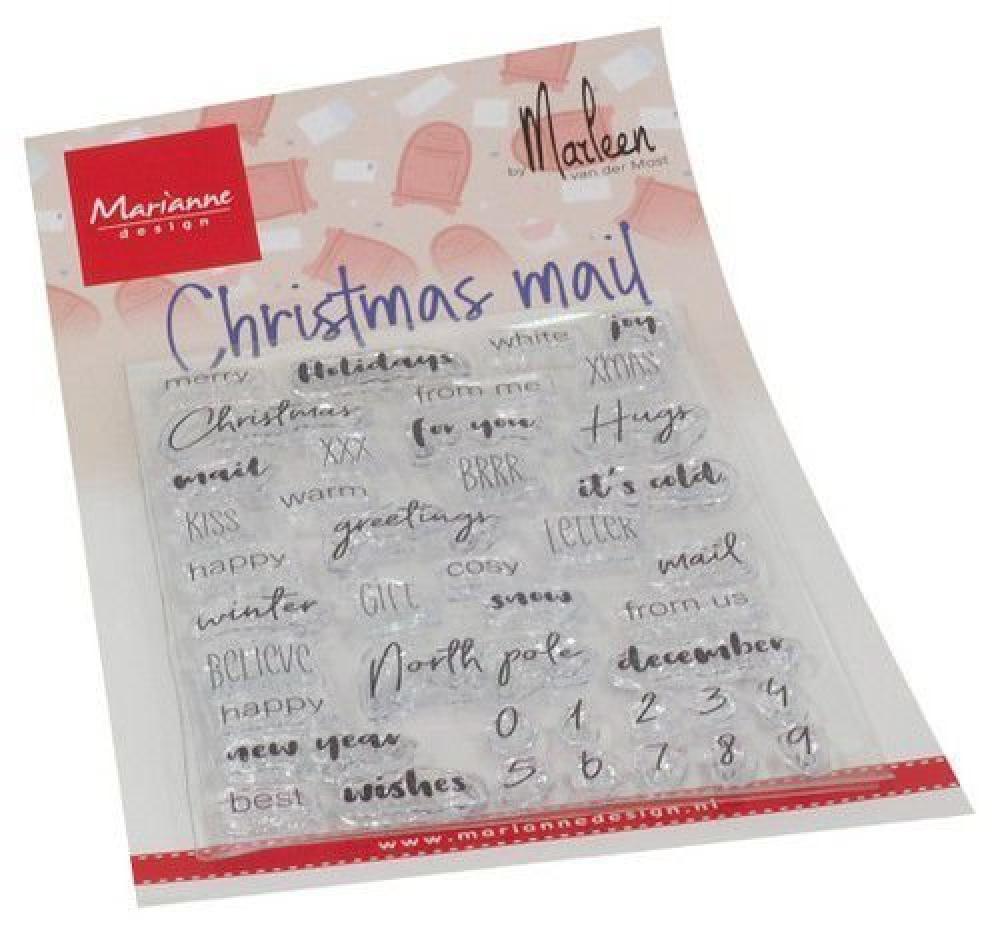 Marianne
design
by Marleen
van der Most
Christmas mail
merry Holidays white joy
from me XMAS
Christmas for you Hugs
mail XXX BRRR it's cold
warm
KISS greetings LETTER
happy cosy mail
winter GIFT snow from us
BELIEVE North pole december
happy 0 1 2 3 4
new year 5 6 7 8 9
best wishes
www.mariannedesign.nl